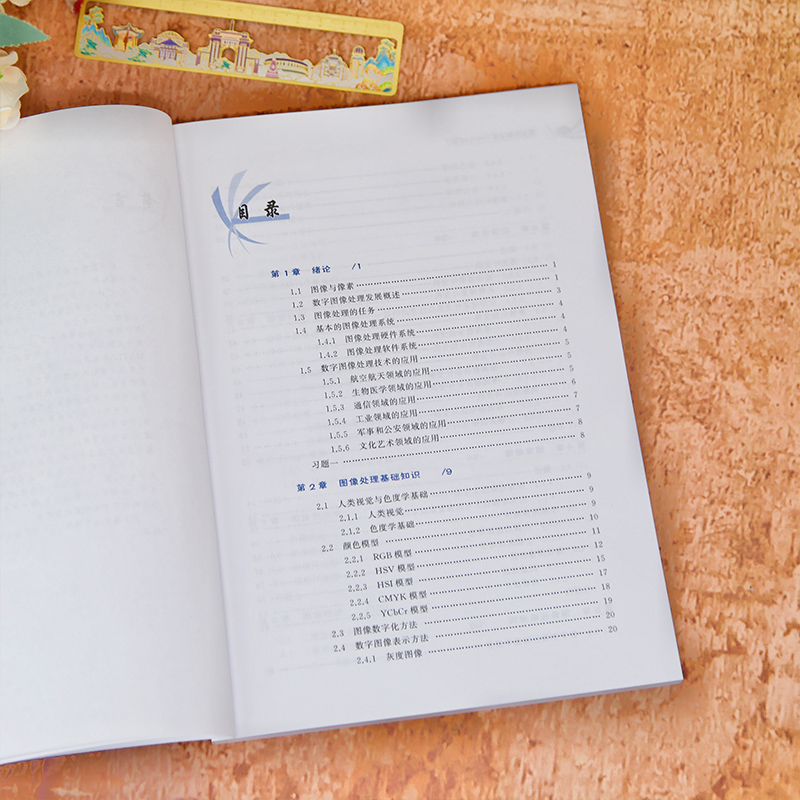 目 录
第1章 绪论 /1
1.1 图像与像素 1
1.2 数字图像处理发展概述 1
1.3 图像处理的任务 3
1.4 基本的图像处理系统 4
1.4.1 图像处理硬件系统 4
1.4.2 图像处理软件系统 4
1.5 数字图像处理技术的应用 5
1.5.1 航空航天领域的应用 5
1.5.2 生物医学领域的应用 5
1.5.3 通信领域的应用 6
1.5.4 工业领域的应用 7
1.5.5 军事和公安领域的应用 7
1.5.6 文化艺术领域的应用 8
习题一 8
第2章 图像处理基础知识 /9
2.1 人类视觉与色度学基础 9
2.1.1 人类视觉 9
2.1.2 色度学基础 9
2.2 颜色模型 10
2.2.1 RGB模型 11
2.2.2 HSV模型 12
2.2.3 HSI模型 15
2.2.4 CMYK模型 17
2.2.5 YCbCr模型 18
2.3 图像数字化方法 19
2.4 数字图像表示方法 20
2.4.1 灰度图像 20